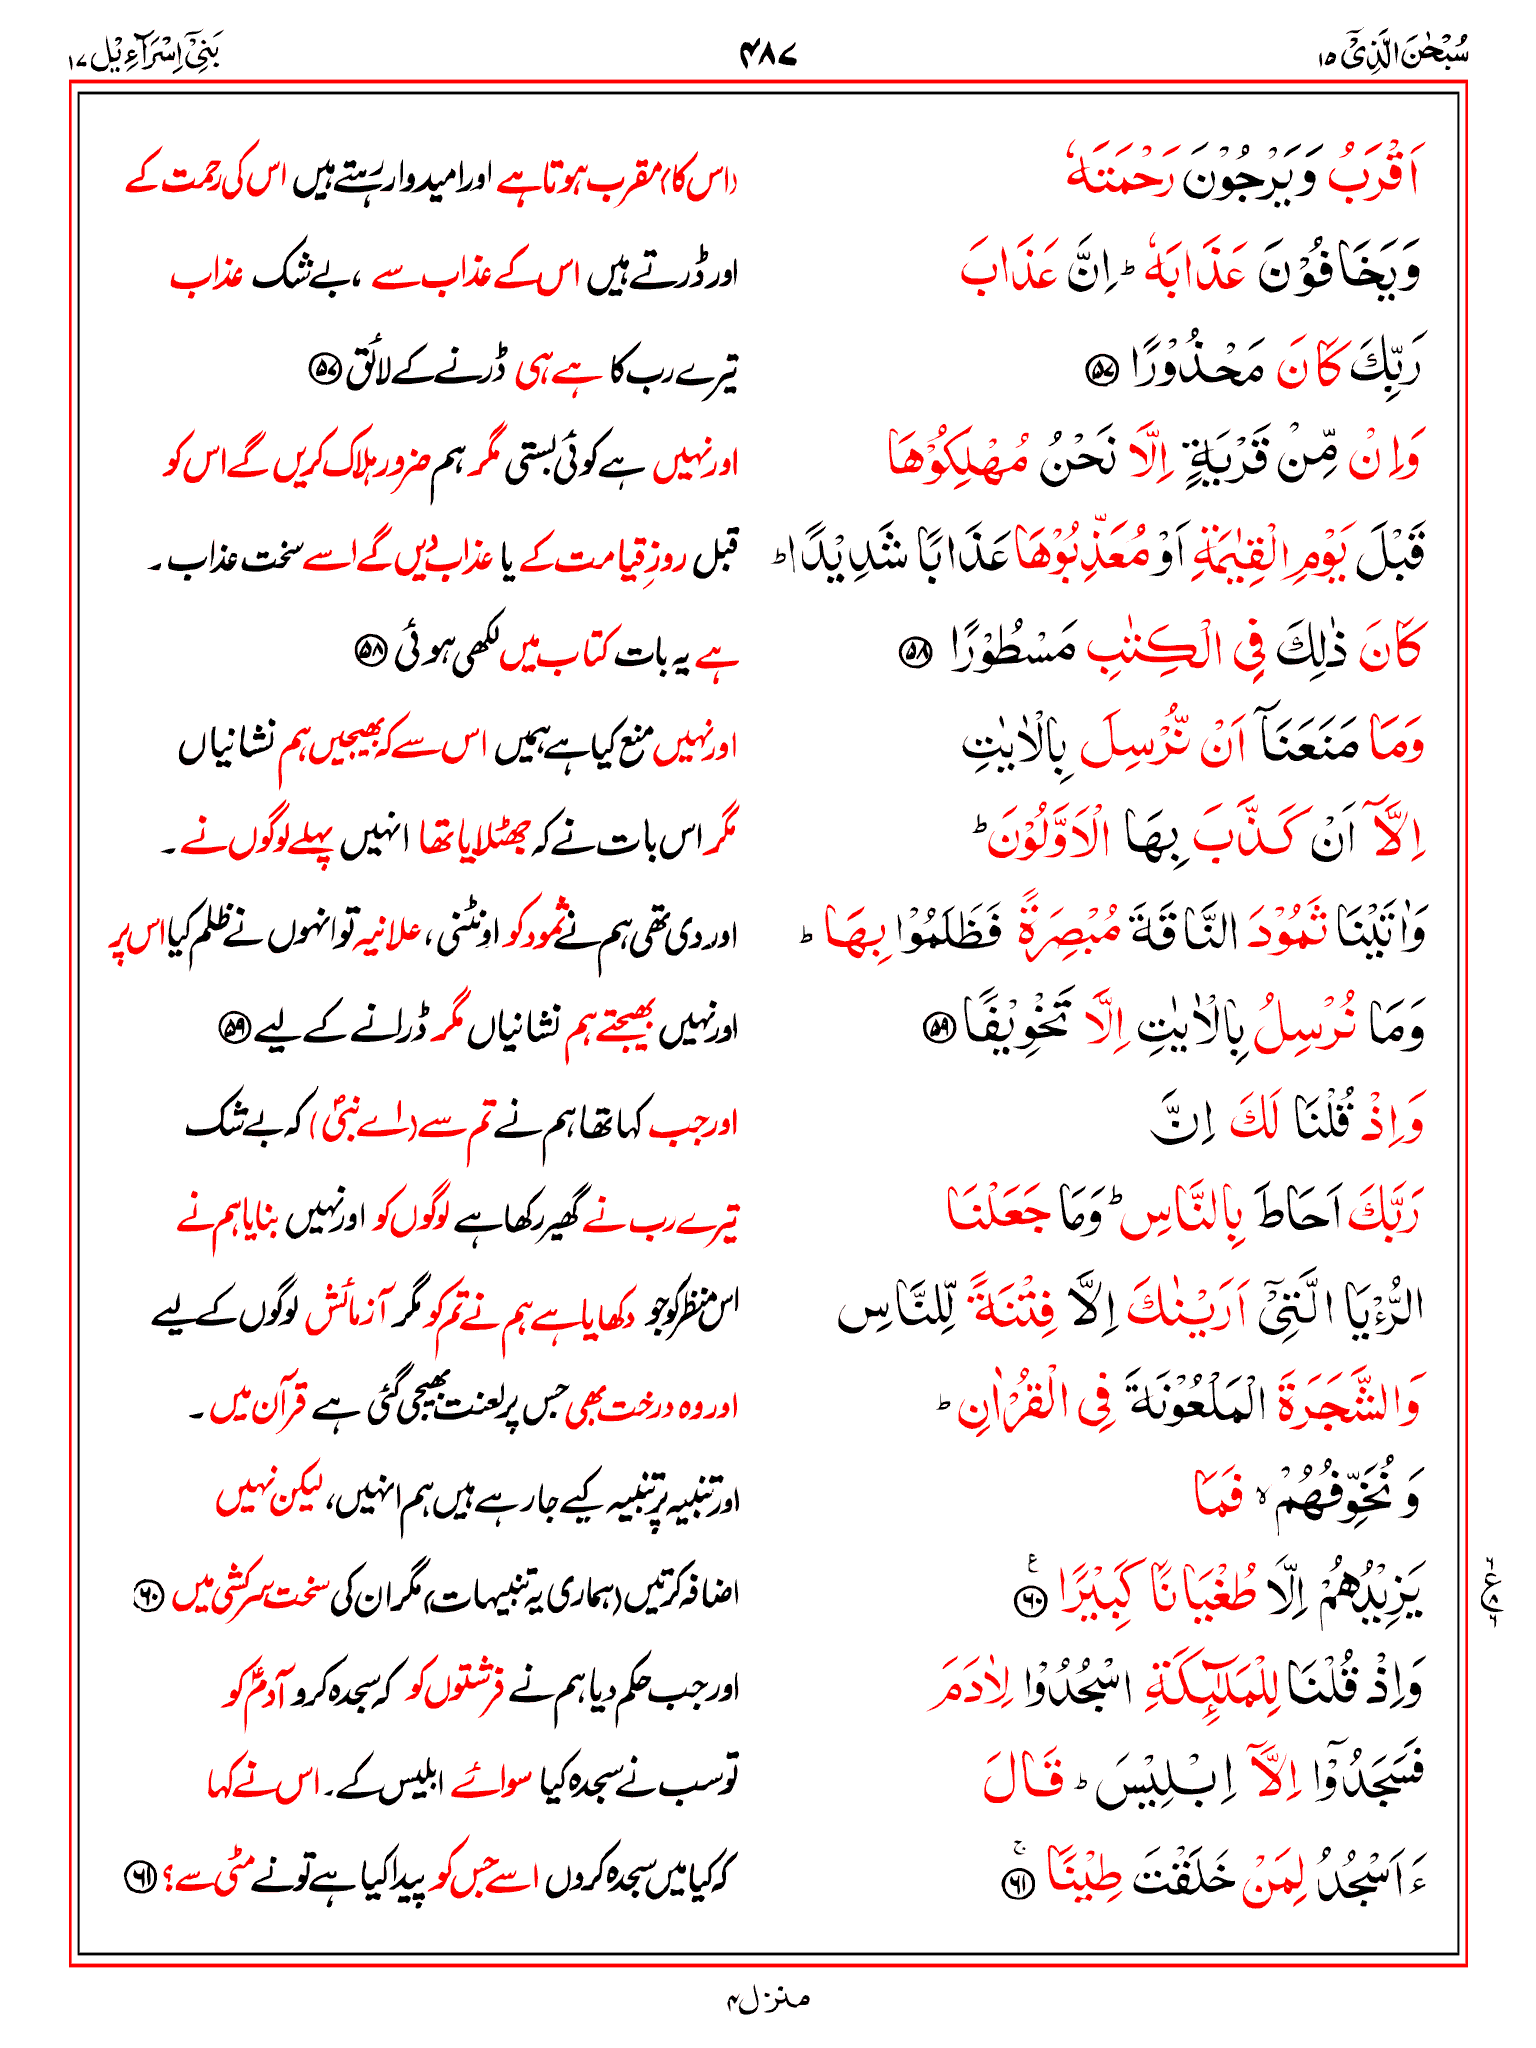 سُبْحٰنَ الَّذِیْۤ ۱۵
۴۸۷
بَنِیْۤ اِسْرَآءِیْل ۱۷
اَقْرَبُ وَیَرْجُوْنَ رَحْمَتَهٗ
(اس کا) مقرب ہوتا ہے اور امیدوار رہتے ہیں اس کی رحمت کے
وَیَخَافُوْنَ عَذَابَهٗ ؕ اِنَّ عَذَابَ
اور ڈرتے ہیں اس کے عذاب سے ، بے شک عذاب
رَبِّكَ كَانَ مَحْذُوْرًا ﴿۵۷﴾
تیرے رب کا ہے ہی ڈرنے کے لائق ﴿۵۷﴾
وَاِنْ مِّنْ قَرْیَةٍ اِلَّا نَحْنُ مُهْلِكُوْهَا
اور نہیں ہے کوئی بستی مگر ہم ضرور ہلاک کریں گے اس کو
قَبْلَ یَوْمِ الْقِیٰمَةِ اَوْ مُعَذِّبُوْهَا عَذَابًا شَدِیْدًا ؕ
قبل روزِ قیامت کے یا عذاب دیں گے اسے سخت عذاب ۔
كَانَ ذٰلِكَ فِی الْكِتٰبِ مَسْطُوْرًا ﴿۵۸﴾
ہے یہ بات کتاب میں لکھی ہوئی ﴿۵۸﴾
وَمَا مَنَعَنَاۤ اَنْ نُّرْسِلَ بِالْاٰیٰتِ
اور نہیں منع کیا ہے ہمیں اس سے کہ بھیجیں ہم نشانیاں
اِلَّاۤ اَنْ كَذَّبَ بِهَا الْاَوَّلُوْنَ ؕ
مگر اس بات نے کہ جھٹلایا تھا انہیں پہلے لوگوں نے ۔
وَاٰتَیْنَا ثَمُوْدَ النَّاقَةَ مُبْصِرَةً فَظَلَمُوْا بِهَا ؕ
اور دی تھی ہم نے ثمود کو اونٹنی ، علانیہ تو انہوں نے ظلم کیا اس پر
وَمَا نُرْسِلُ بِالْاٰیٰتِ اِلَّا تَخْوِیْفًا ﴿۵۹﴾
اور نہیں بھیجتے ہم نشانیاں مگر ڈرانے کے لیے ﴿۵۹﴾
وَاِذْ قُلْنَا لَكَ اِنَّ
اور جب کہا تھا ہم نے تم سے (اے نبیؐ) کہ بے شک
رَبَّكَ اَحَاطَ بِالنَّاسِ ؕ وَمَا جَعَلْنَا
تیرے رب نے گھیر رکھا ہے لوگوں کو اور نہیں بنایا ہم نے
الرُّءْیَا الَّتِیْۤ اَرَیْنٰكَ اِلَّا فِتْنَةً لِّلنَّاسِ
اس منظر کو جو دکھایا ہے ہم نے تم کو مگر آزمائش لوگوں کے لیے
وَالشَّجَرَةَ الْمَلْعُوْنَةَ فِی الْقُرْاٰنِ ؕ
اور وہ درخت بھی جس پر لعنت بھیجی گئی ہے قرآن میں ۔
وَنُخَوِّفُهُمْ ۙ فَمَا
اور تنبیہ پر تنبیہ کیے جا رہے ہیں ہم انہیں ، لیکن نہیں
یَزِیْدُهُمْ اِلَّا طُغْیَانًا كَبِیْرًا ﴿۶۰﴾ ع
اضافہ کرتیں (ہماری یہ تنبیہات) مگر ان کی سخت سرکشی میں ﴿۶۰﴾
۶ ع ۸ ۶
وَاِذْ قُلْنَا لِلْمَلٰٓئِكَةِ اسْجُدُوْا لِاٰدَمَ
اور جب حکم دیا ہم نے فرشتوں کو کہ سجدہ کرو آدمؑ کو
فَسَجَدُوْۤا اِلَّاۤ اِبْلِیْسَ ؕ قَالَ
تو سب نے سجدہ کیا سوائے ابلیس کے ۔ اس نے کہا
ءَاَسْجُدُ لِمَنْ خَلَقْتَ طِیْنًا ﴿۶۱﴾ ۚ
کہ کیا میں سجدہ کروں اسے جس کو پیدا کیا ہے تو نے مٹی سے؟ ﴿۶۱﴾
منزل ۴